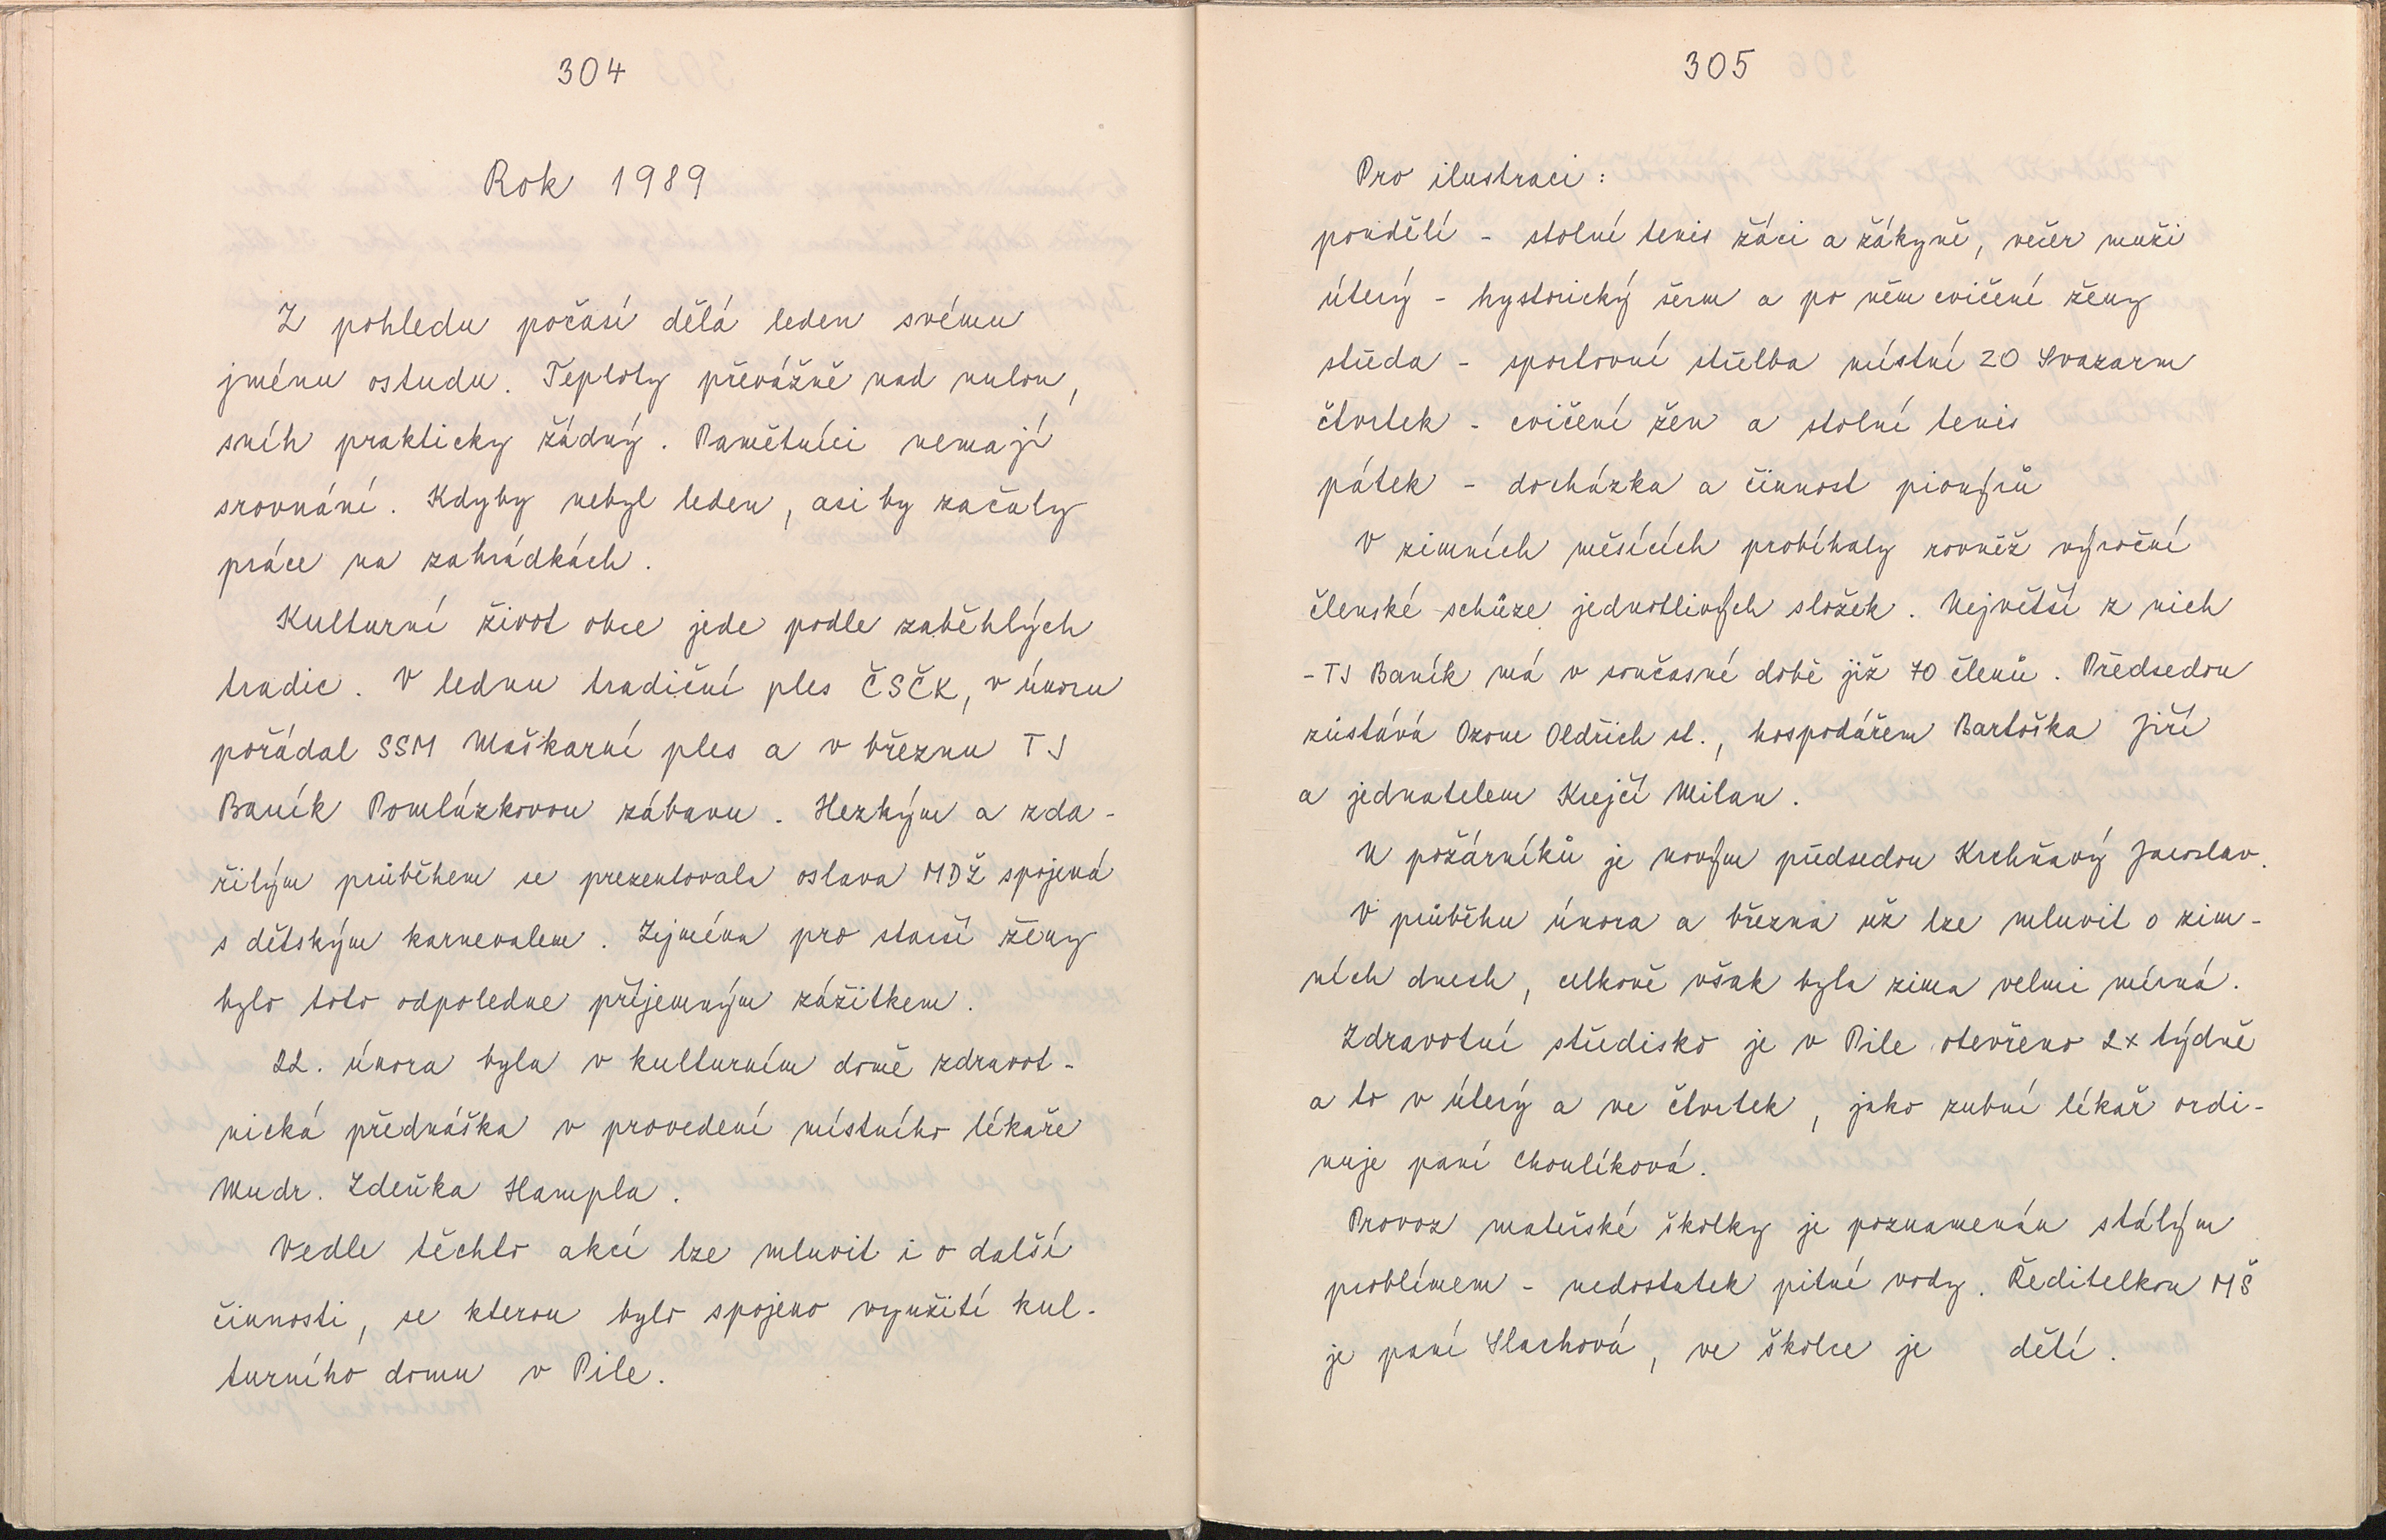 304
Rok 1989
Z pohledu počasí dělá leden svému
jménu ostudu. Teploty převážně nad nulou,
sníh prakticky žádný. Pamětníci nemají
srovnání. Kdyby nebyl leden, asi by začaly
práce na zahrádkách.
Kulturní život obce jede podle zaběhlých
tradic. V lednu tradiční ples ČSČK, v únoru
pořádal SSM Maškarní ples a v březnu TJ
Baník Pomlázkovou zábavu. Hezkým a zda-
řilým průběhem se prezentovala oslava MDŽ spojená
s dětským karnevalem. Zejména pro starší ženy
bylo toto odpoledne příjemným zážitkem.
22. února byla v kulturním domě zdravot-
nická přednáška v provedení místního lékaře
Mudr. Zdeňka Hampla.
Vedle těchto akcí lze mluvit i o další
činnosti, se kterou bylo spojeno využití kul-
turního domu v Pile.
305
Pro ilustraci:
pondělí - stolní tenis žáci a žákyně, večer muži
úterý - hystorický šerm a po něm cvičení ženy
středa - sportovní střelba místní ZO Svazarm
čtvrtek - cvičení žen a stolní tenis
pátek - docházka a činnost pionýrů
V zimních měsících probíhaly rovněž výroční
členské schůze jednotlivých složek. Největší z nich
- TJ Baník má v současné době již 70 členů. Předsedou
zůstává Ozom Oldřich st., hospodářem Bartoška Jiří
a jednatelem Krejčí Milan.
U požárníků je novým předsedou Krchňavý Jaroslav.
V průběhu února a března už lze mluvit o zim-
ních dnech, celkově však byla zima velmi mírná.
Zdravotní středisko je v Pile otevřeno 2x týdně
a to v úterý a ve čtvrtek, jako zubní lékař ordi-
nuje paní Choulíková.
Provoz mateřské školky je poznamenán stálým
problémem - nedostatek pitné vody. Ředitelkou MŠ
je paní Slachová, ve školce je dětí.